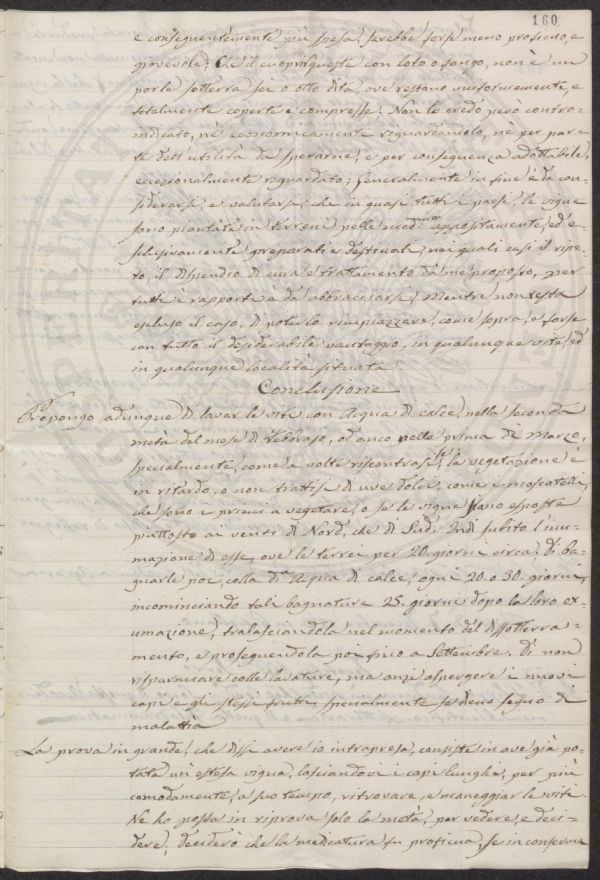 160
e conseguentemente più spesa, sarebbe forse meno proficuo, e
giovevole; Che il cuoprir queste con loto o fango, non è un
porla sotterra sei o otto dita, ove restano uniformemente, e
totalmente coperte e compresse; Non le credo però contro=
indicato, nè economicamente riguardandolo, nè per par=
te dell'utilità da sperarne, e per conseguenza adottabile,
eccezionalmente riguardato; Generalmente in fine è da con=
siderarsi, e valutarsi, che in quasi tutti i paesi, le vigne
sono piantate in terreni pelle med.me appositamente, ed e=
sclusivamente preparati e destinati, nei quali casi il ripe=
to, il dispendio di cura e trattamento da me proposto, per
tutti i rapporti è da abbracciarsi, Mentre non resta
escluso il caso, di poterlo rimpiazzare, come sopra, e forse
con tutto il desiderabile vantaggio, in qualunque vite, ed
in qualunque località situata
Conclusione
Propongo adunque di lavar le viti con Acqua di calce, nella seconda
metà del mese di Febbrajo, od anco nella prima di Marzo,
specialmente, come a volte riscontrasi, se la vegetazione è
in ritardo, o non trattisi di uve dolci, come i moscatelli,
che sono i primi a vegetare, o se le vigne siano esposte
piuttosto ai venti di Nord, che di Sud. Indi subito l'inu=
mazione di esse, ove le terrei per 20. giorni circa. Di ba=
gnarle poi, colla d.a Acqua di calce, ogni 20. o 30. giorni,
incominciando tali bagnature 25. giorni dopo la loro ex=
umazione, tralasciandola nel momento del dissotterra=
mento, e proseguendola poi fino a Settembre. Di non
risparmiare colle lavature, ma anzi aspergere i nuovi
capi e gli stessi frutti, specialmente se dieno segno di
malattia
La prova in grande, che dissi avere io intrapresa, consiste in ave già po=
tata un'estesa vigna, lasciandovi i capi lunghi, per più
comodamente, a suo tempo, ritrovare, e maneggiar le viti.
Ne ho posta in riprova solo la metà, per vedere, e deci=
dere, deciderò che la medicatura fu proficua, se in conferma